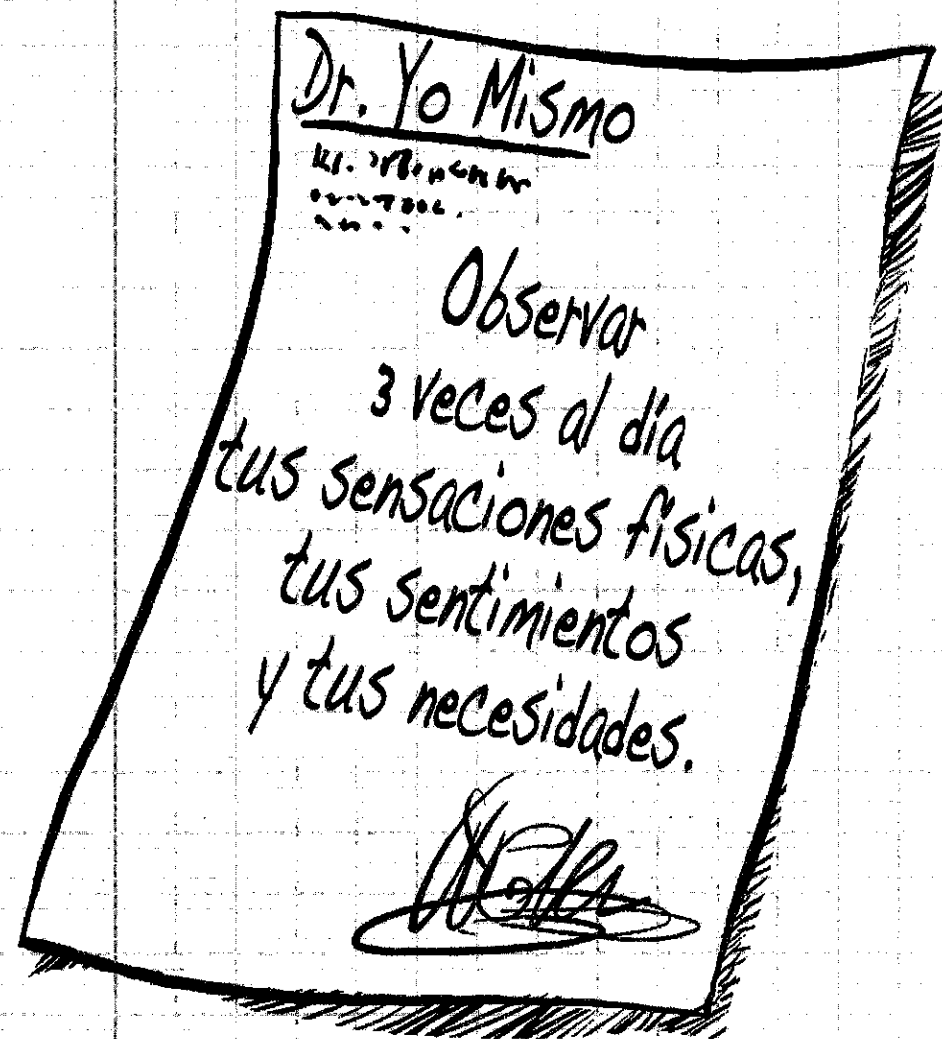 Dr. Yo Mismo
Observar
3 veces al día
tus sensaciones físicas,
tus sentimientos
y tus necesidades.